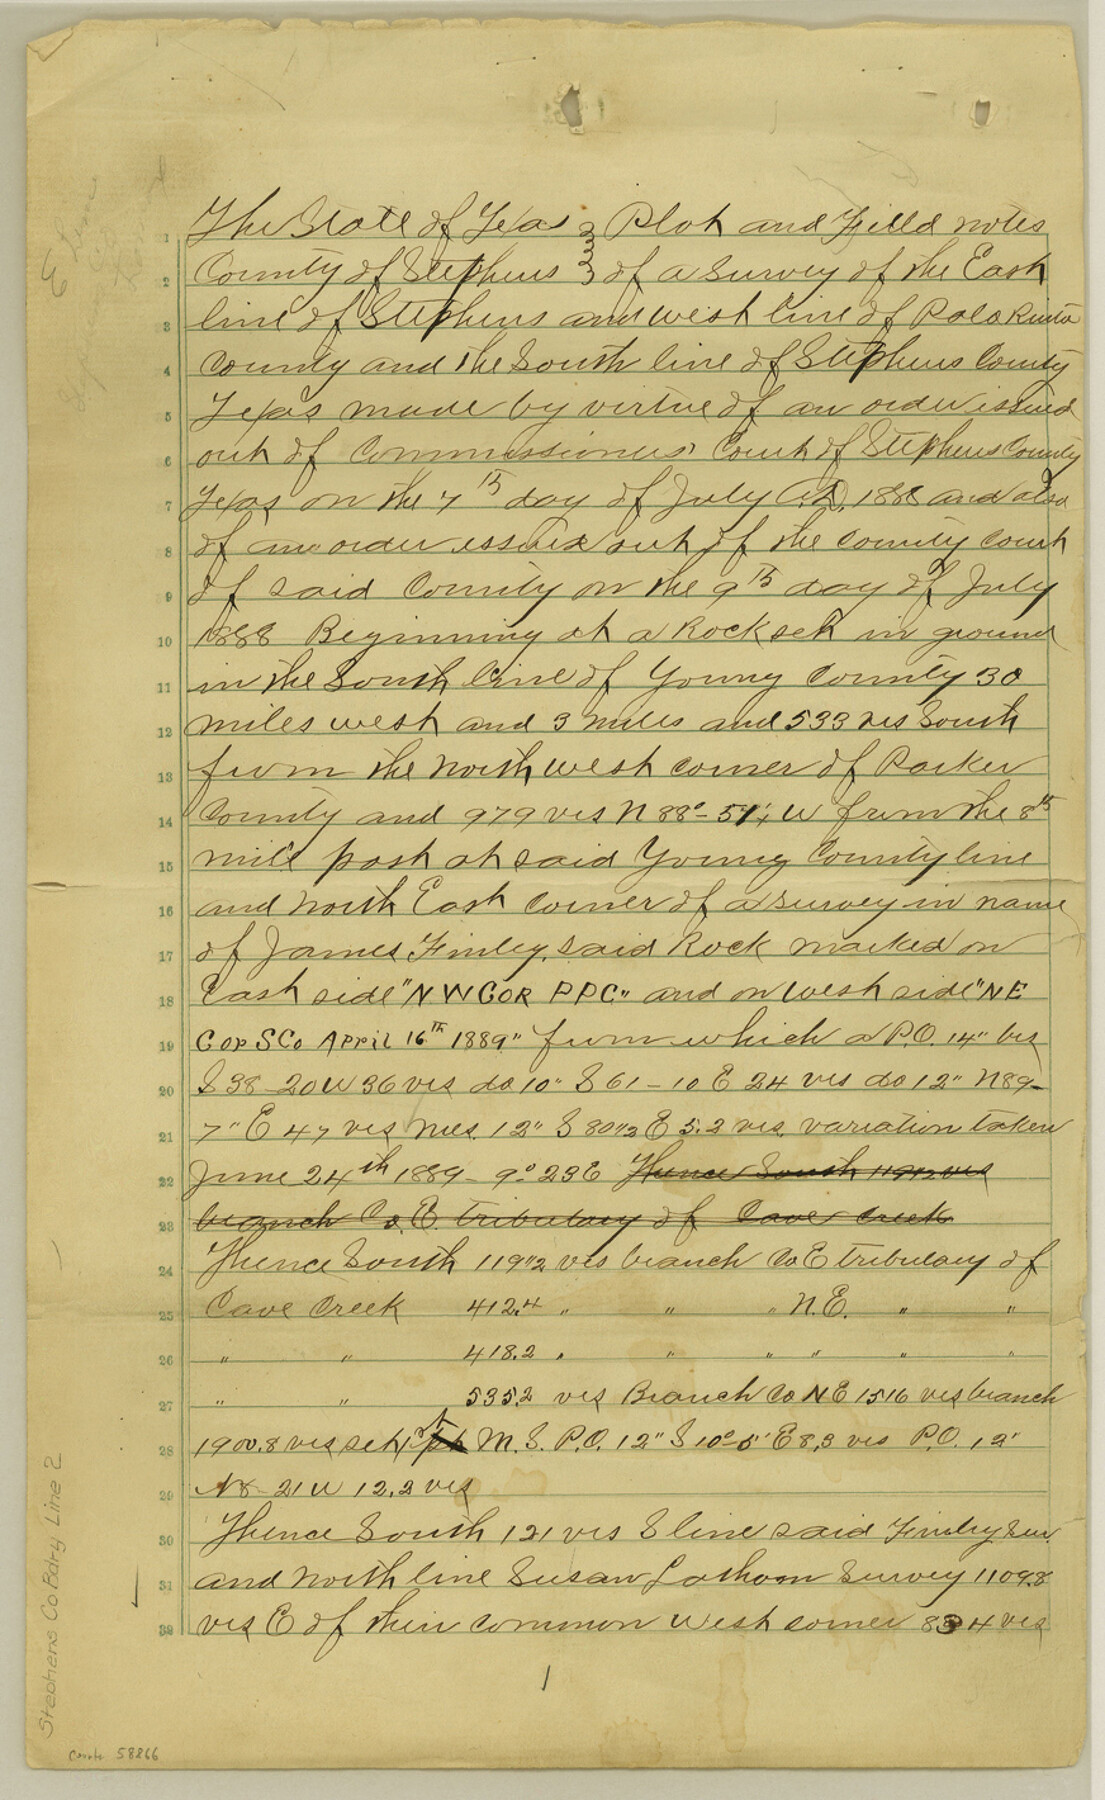 The State of Texas } Plot and Field notes
County of Stephens } of a survey of the East
line of Stephens and west line of Palo Pinto
County and the South line of Stephens County
Texas made by virtue of an order issued
out of Commissioners' Court of Stephens County
Texas on the 7th day of July A.D. 1888 and also
of an order issued out of the County Court
of said County on the 9th day of July
1888 Beginning at a Rock set in ground
in the South line of Young County 30
miles west and 3 miles and 533 vrs South
from the North west corner of Parker
County and 979 vrs N 88°- 51' W from the 8th
mile post of said Young County line
and North East corner of a survey in name
of James Finley, said Rock marked on
East side "N W COR P P C" and on west side "N E
Cor S Co April 16th 1889" from which a P.O. 14" brs
S 38 - 20 W 36 vrs do 10" S 61 - 10 E 24 vrs do 12" N 89-
7" E 47 vrs Mes. 12" S 80 1/2 E 5.2 vrs. variation taken
June 24th 1889 - 9° 23 E Thence South 119 1/2 vrs
branch Co. E. tributary of Cave Creek
Thence South 119 1/2 vrs branch Co E tributary of
Cave Creek 412.4 " " " N.E. " "
" " 418.2 " " " " " "
" " 535.2 vrs Branch Co N E 1516 vrs branch
1900.8 vrs set 1st M. S. P.O. 12" S 10°- 5' E 8.3 vrs P.O. 12"
N 8 - 21 W 12.2 vrs
Thence South 121 vrs S line said Finley Sur.
and North line Susan Lathom Survey 1109.8
vrs E of their common West corner 834 vrs
1
Stephens Co Bdry Line 2
58866